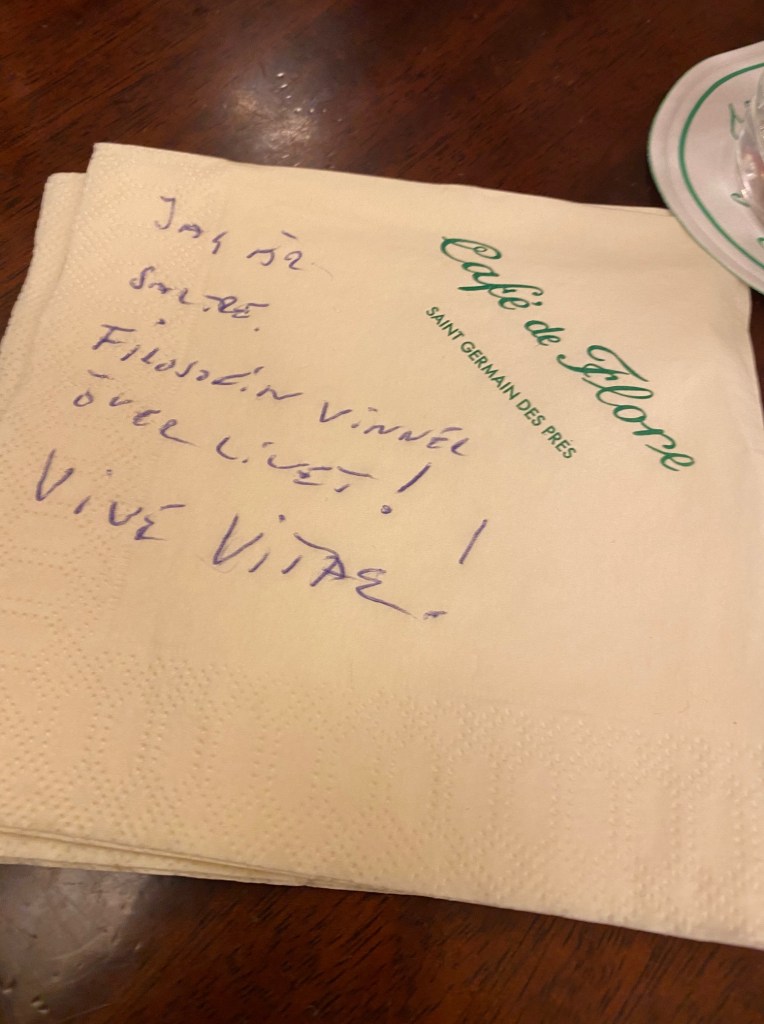 JAG ÄR
SARTRE.
FILOSOFIN VINNER
ÖVER LIVET!
VIVE VITAE!
Café de Flore
SAINT GERMAIN DES PRÉS